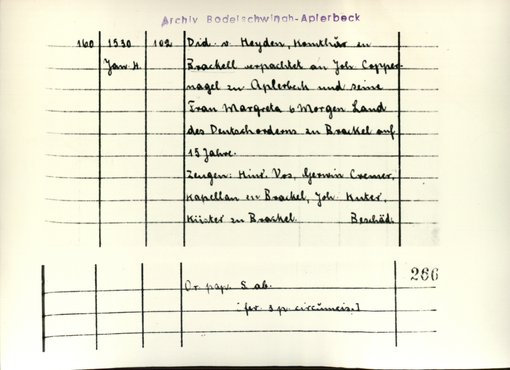 Archiv Bodelschwingh-Aplerbeck
160 1530 102 Did. v. Heyden, Komthur en
Jan. 4. Brackell verpachtet an Joh. Copper-
nagel zu Aplerbeck und seine
Frau Margreta 6 Morgen Land
des Deutschordens zu Brackel auf
15 Jahre.
Zeugen: Hinr. Vos, Gerwin Cremer,
Kapellan en Brackel, Joh. Kuter,
Küster zu Brackel. Beschäd.
266
Or. pap. S. ab.
[fer. 3 p. circumcis.]